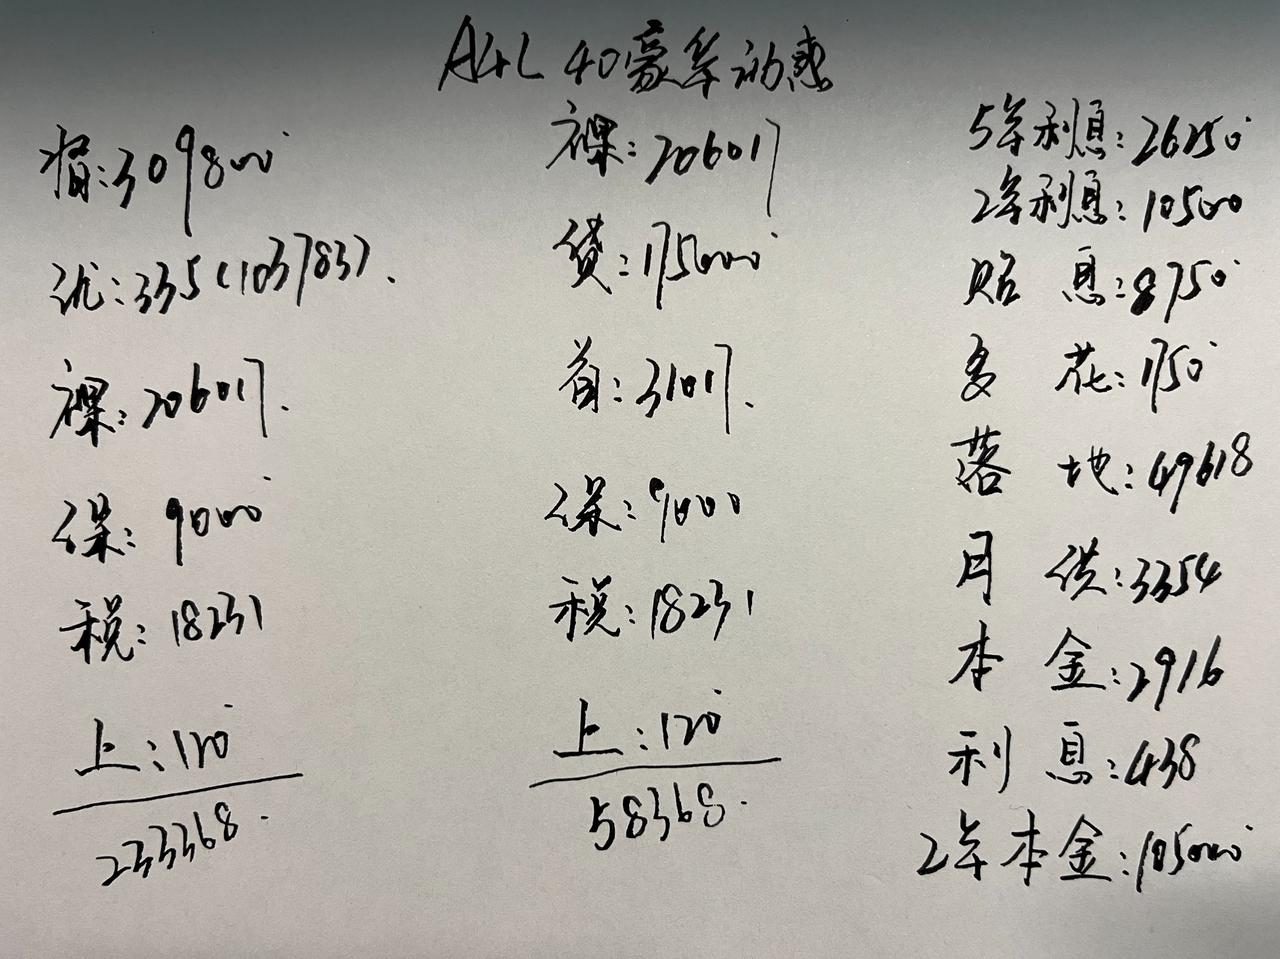 A4L 40豪华动感
指:309800
优:335(103783).
裸:206017.
保:9000
税:18231
上:120
233368.
裸:206017
贷:175000
首:31017.
保:9000
税:18231
上:120
58368.
5年利息:26250
2年利息:10500
贴息:8750
多花:1750
落地:49618
月供:3354
本金:2916
利息:438
2年本金:105000